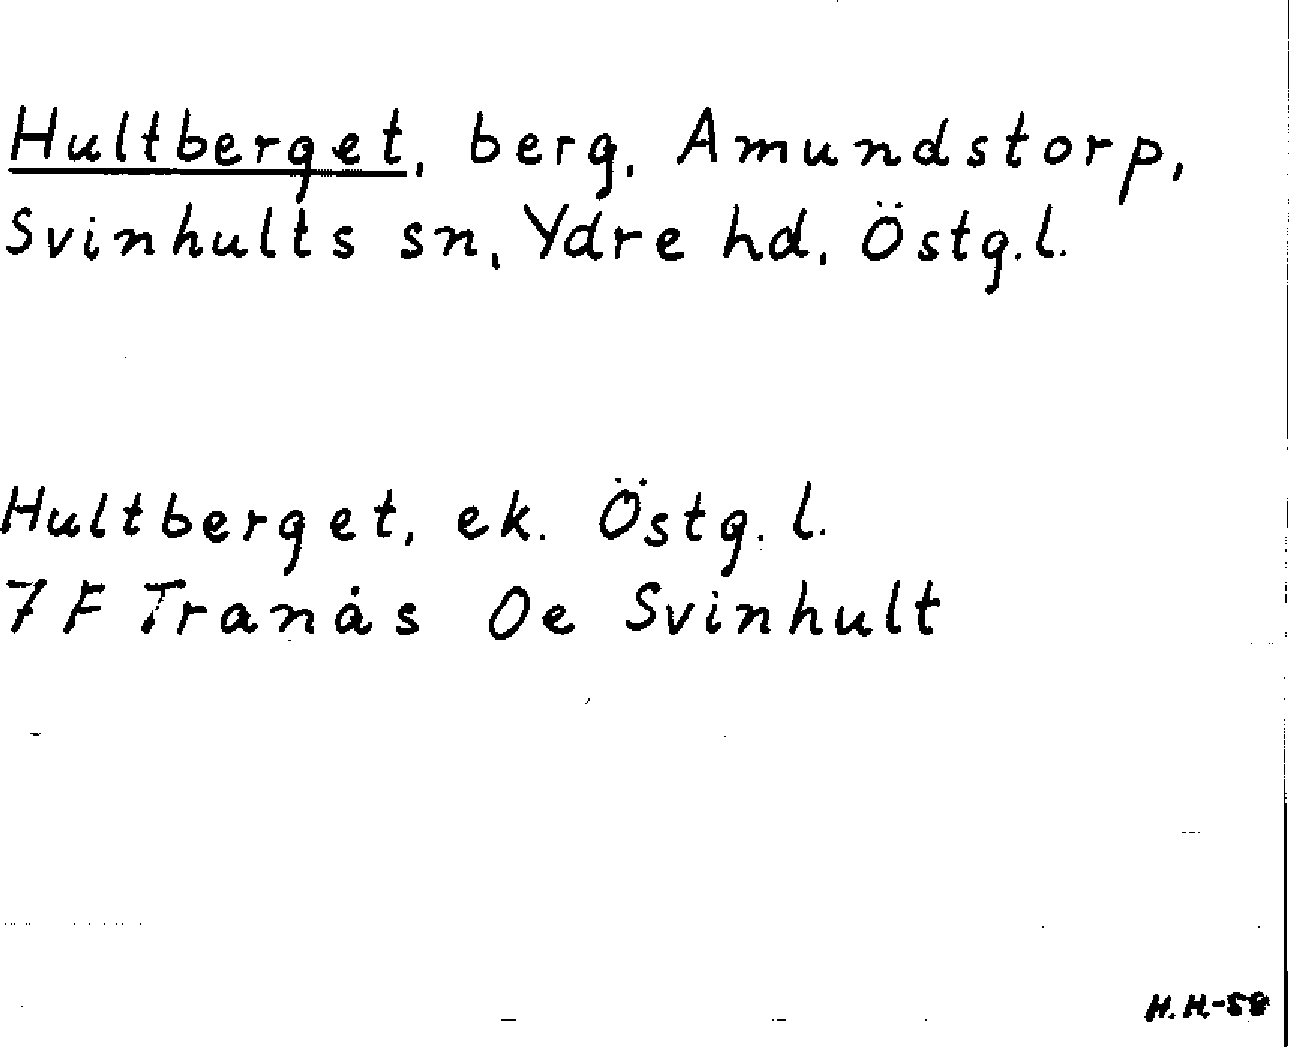 Hultberget, berg, Amundstorp,
Svinhults sn, Ydre hd, Östg.l.
Hultberget, ek. Östg. l.
7 F Tranås Oe Svinhult
H.H.-58